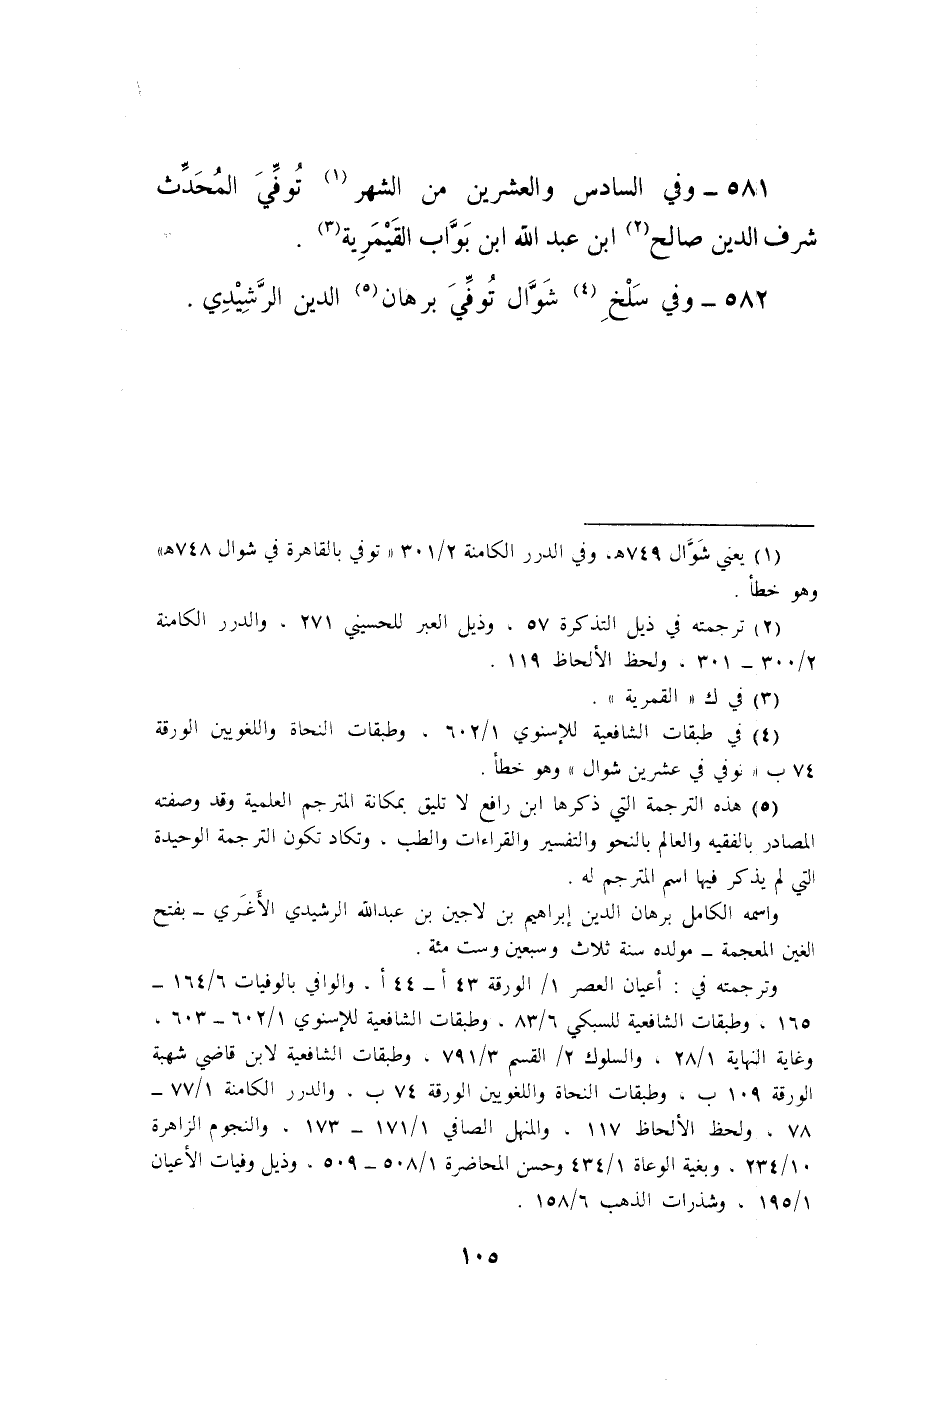 ٥٨١ ــ وفي السادس والعشرين من الشهر (١) تُوفِّيَ المُحَدِّث
شرف الدين صالح(٢) ابن عبد الله ابن بَوَّاب القَيْمَرِية(٣) .
٥٨٢ ــ وفي سَلْخِ (٤) شَوَّال تُوفِّيَ برهان(٥) الدين الرَّشِيْدِي .
(١) يعني شَوَّال ٧٤٩هـ. وفي الدرر الكامنة ٣٠١/٢ « توفي بالقاهرة في شوال ٧٤٨هـ»
وهو خطأ .
(٢) ترجمته في ذيل التذكرة ٥٧ ، وذيل العبر للحسيني ٢٧١ ، والدرر الكامنة
٣٠٠/٢ ــ ٣٠١ ، ولحظ الألحاظ ١١٩ .
(٣) في ك « القمرية » .
(٤) في طبقات الشافعية للإسنوي ٦٠٢/١ ، وطبقات النحاة واللغويين الورقة
٧٤ ب « نوفي في عشرين شوال » وهو خطأ .
(٥) هذه الترجمة التي ذكرها ابن رافع لا تليق بمكانة المترجم العلمية وقد وصفته
المصادر بالفقيه والعالم بالنحو والتفسير والقراءات والطب ، وتكاد تكون الترجمة الوحيدة
التي لم يذكر فيها اسم المترجم له .
واسمه الكامل برهان الدين إبراهيم بن لاجين بن عبدالله الرشيدي الأَغَري ــ بفتح
الغين المعجمة ــ مولده سنة ثلاث وسبعين وست مئة .
وترجمته في : أعيان العصر ١/ الورقة ٤٣ أ ــ ٤٤ أ ، والوافي بالوفيات ١٦٤/٦ ــ
١٦٥ ، وطبقات الشافعية للسبكي ٨٣/٦ ، وطبقات الشافعية للإسنوي ٦٠٢/١ ــ ٦٠٣ ،
وغاية النهاية ٢٨/١ ، والسلوك ٢/ القسم ٧٩١/٣ ، وطبقات الشافعية لابن قاضي شهبة
الورقة ١٠٩ ب ، وطبقات النحاة واللغويين الورقة ٧٤ ب ، والدرر الكامنة ٧٧/١ ــ
٧٨ ، ولحظ الألحاظ ١١٧ ، والمنهل الصافي ١٧١/١ ــ ١٧٣ ، والنجوم الزاهرة
٢٣٤/١٠ ، وبغية الوعاة ٤٣٤/١ وحسن المحاضرة ٥٠٨/١ ــ ٥٠٩ ، وذيل وفيات الأعيان
١٩٥/١ ، وشذرات الذهب ١٥٨/٦ .
١٠٥